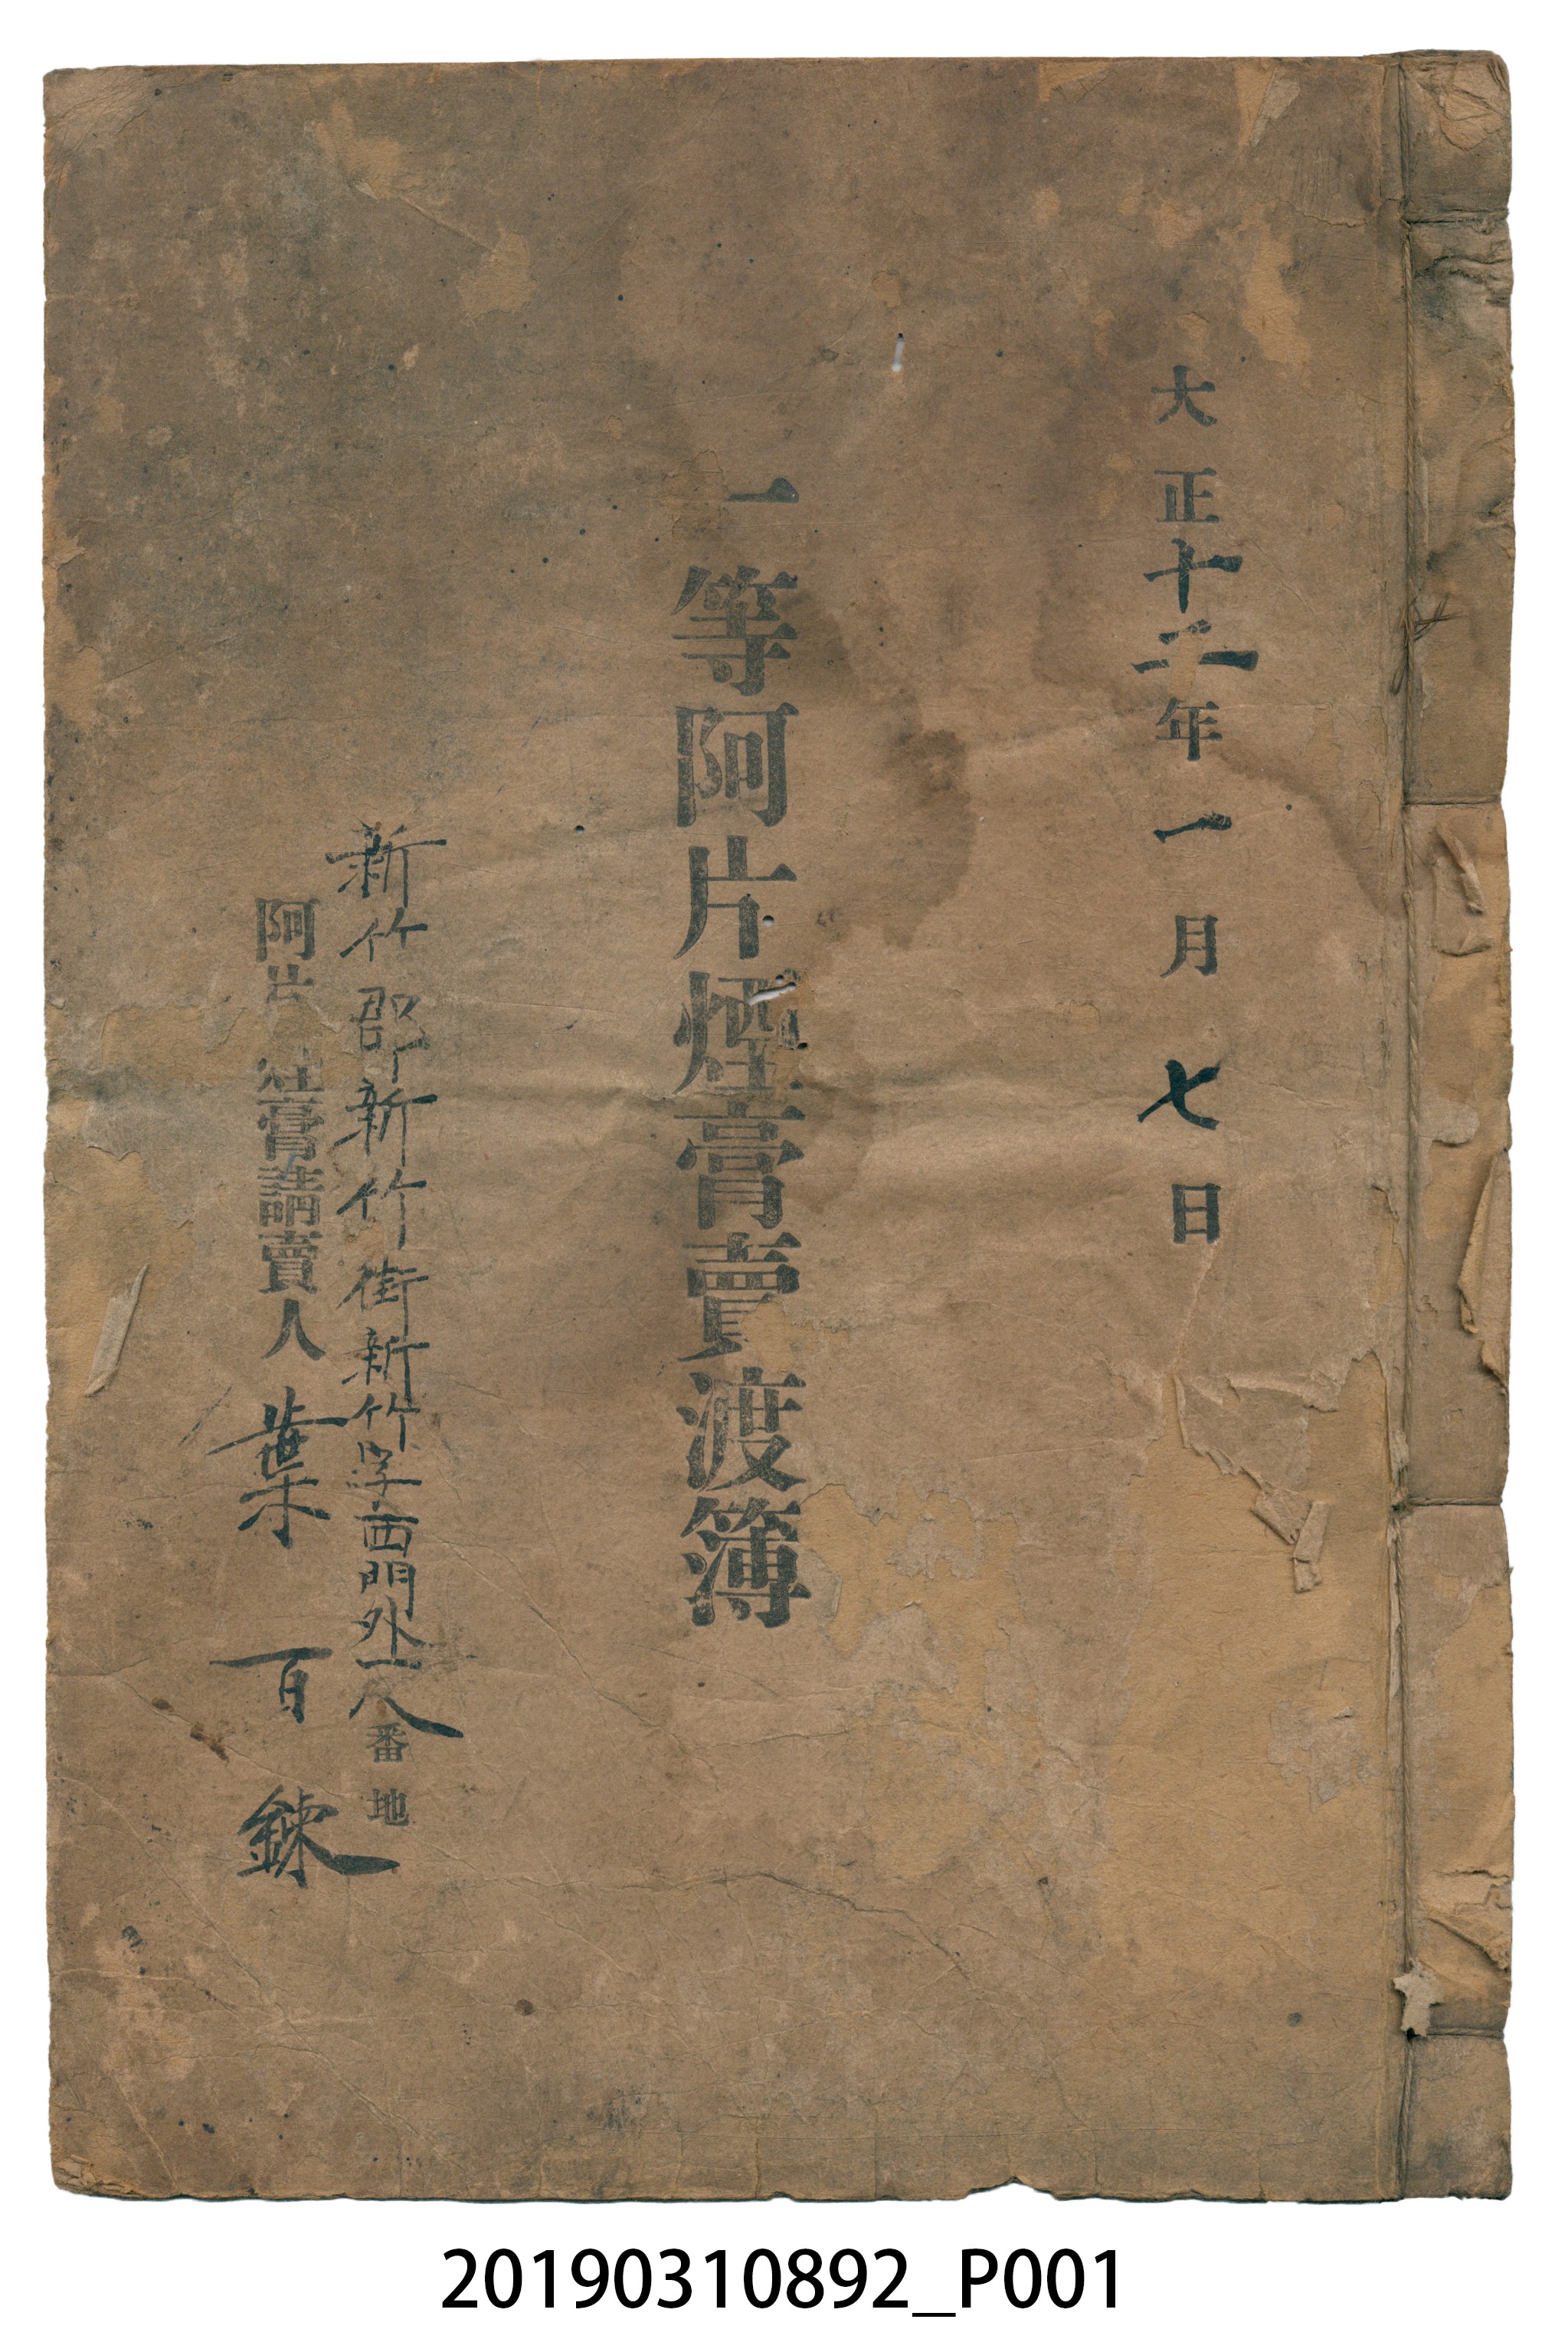 大正十二年一月七日
一等阿片煙膏賣渡簿
新竹郡新竹街新竹字西門外一八番地
阿片煙膏請賣人 葉百鍊
20190310892_P001